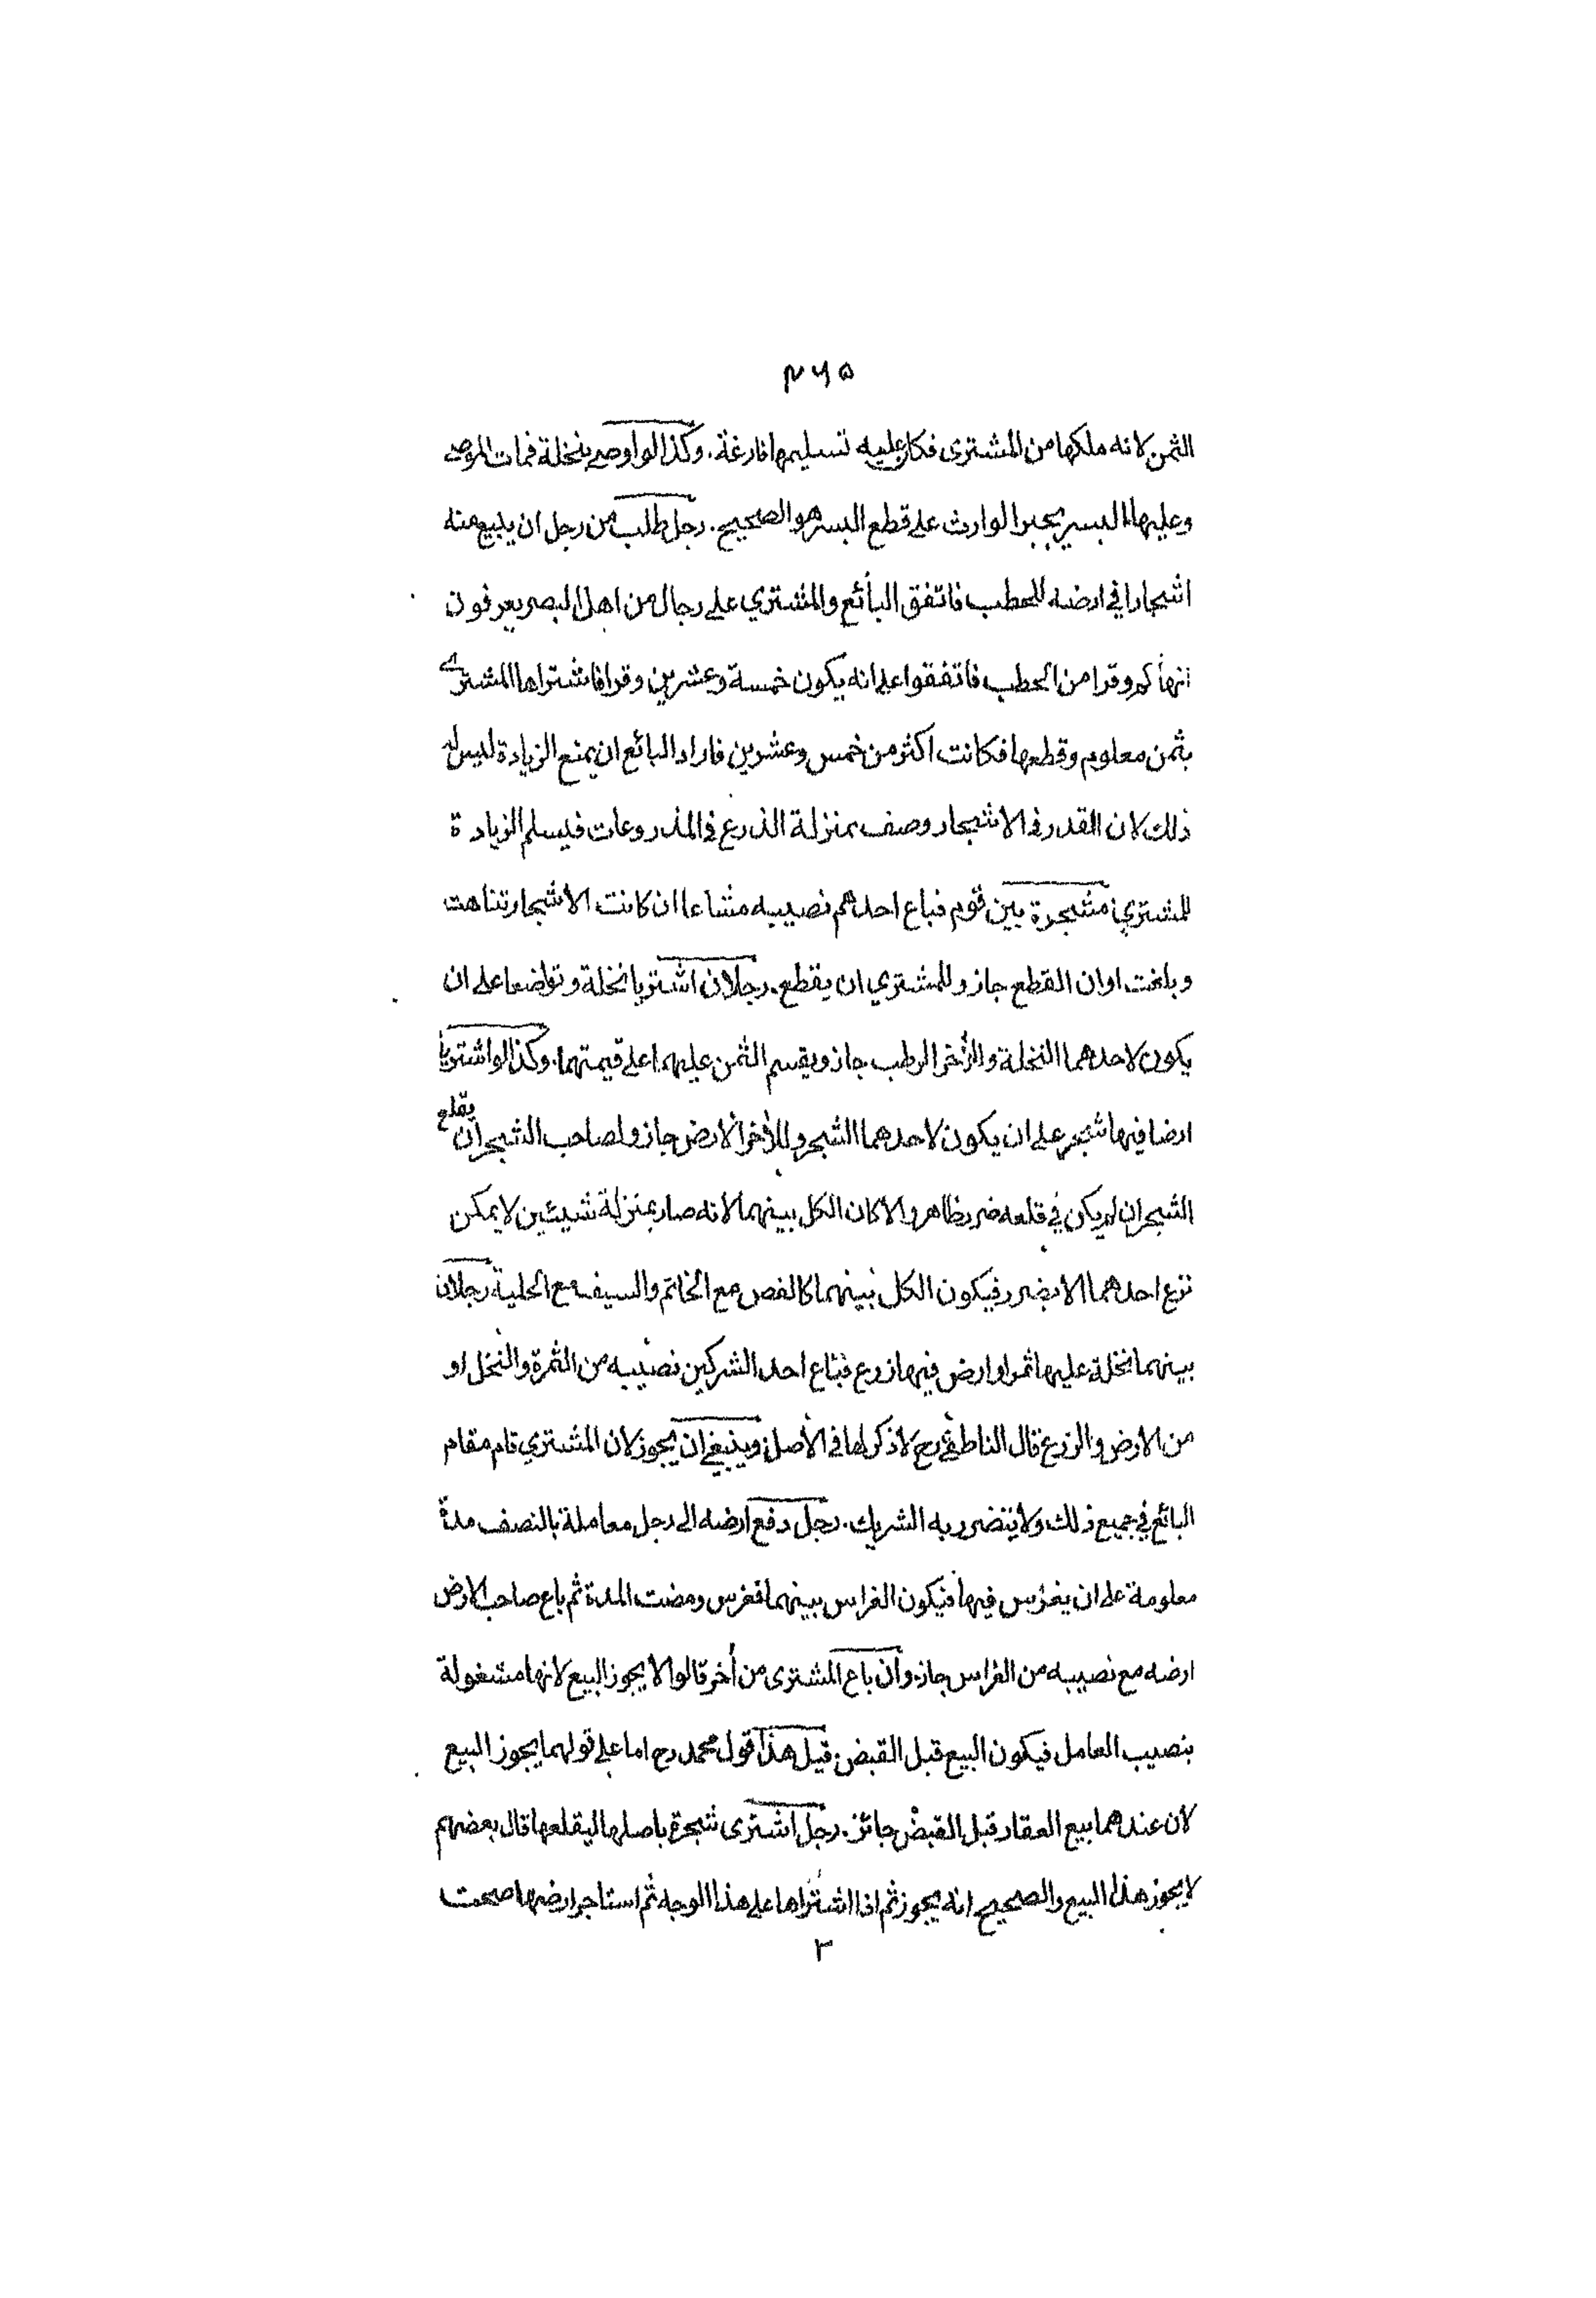 ٣٦٥
الثمن لانه ملكها من المشترى فكان عليه تسليمها فارغة. وكذا لو اوصى بنخلة فمات الموصى
وعليها البسر يجبر الوارث على قطع البسر هو الصحيح. رجل طلب من رجل ان يبيع منه
اشجارا في ارضه للحطب فاتفق البائع والمشتري على رجال من اهل البصر يعرفون
انها كم وقرا من الحطب فاتفقوا على انه يكون خمسة وعشرين وقرا فاشتراها المشترى
بثمن معلوم وقطعها فكانت اكثر من خمس وعشرين فاراد البائع ان يمنع الزيادة ليس له
ذلك لان القدر في الاشجار وصف بمنزلة الذرع في المذروعات فيسلم الزيادة
للمشتري. مشجرة بين قوم فباع احدهم نصيبه مشاعا ان كانت الاشجار تناهت
وبلغت اوان القطع جاز وللمشتري ان يقطع. رجلان اشتريا نخلة وتواضعا على ان
يكون لاحدهما النخلة والأخر الرطب جاز ويقسم الثمن عليهما على قيمتهما. وكذا لو اشتريا
ارضا فيها شجر على ان يكون لاحدهما الشجر وللأخر الارض جاز ولصاحب الشجر ان يقلع
الشجر ان لم يكن في قلعه ضرر ظاهر والا كان الكل بينهما لانه صار بمنزلة شيئين لا يمكن
نزع احدهما الا بضرر فيكون الكل بينهما كالفص مع الخاتم والسيف مع الحلية. رجلان
بينهما نخلة عليها ثمر او ارض فيها زرع فباع احد الشركين نصيبه من الثمرة والنخل او
من الارض والزرع قال الناطفى رح لا ذكر لها في الأصل وينبغي ان يجوز لان المشتري قام مقام
البائع في جميع ذلك ولا يتضرر به الشريك. رجل دفع ارضه الى رجل معاملة بالنصف مدة
معلومة على ان يغرس فيها فيكون الغراس بينهما فغرس ومضت المدة ثم باع صاحب الارض
ارضه مع نصيبه من الغراس جاز. وان باع المشترى من أخر قالوا لا يجوز البيع لانها مشغولة
بنصيب العامل فيكون البيع قبل القبض. قيل هذا قول محمد رح اما على قولهما يجوز البيع
لان عندهما بيع العقار قبل القبض جائز. رجل اشترى شجرة باصلها ليقلعها قال بعضهم
لا يجوز هذا البيع والصحيح انه يجوز ثم اذا اشتراها على هذا الوجه ثم استاجر ارضها صحت
٣